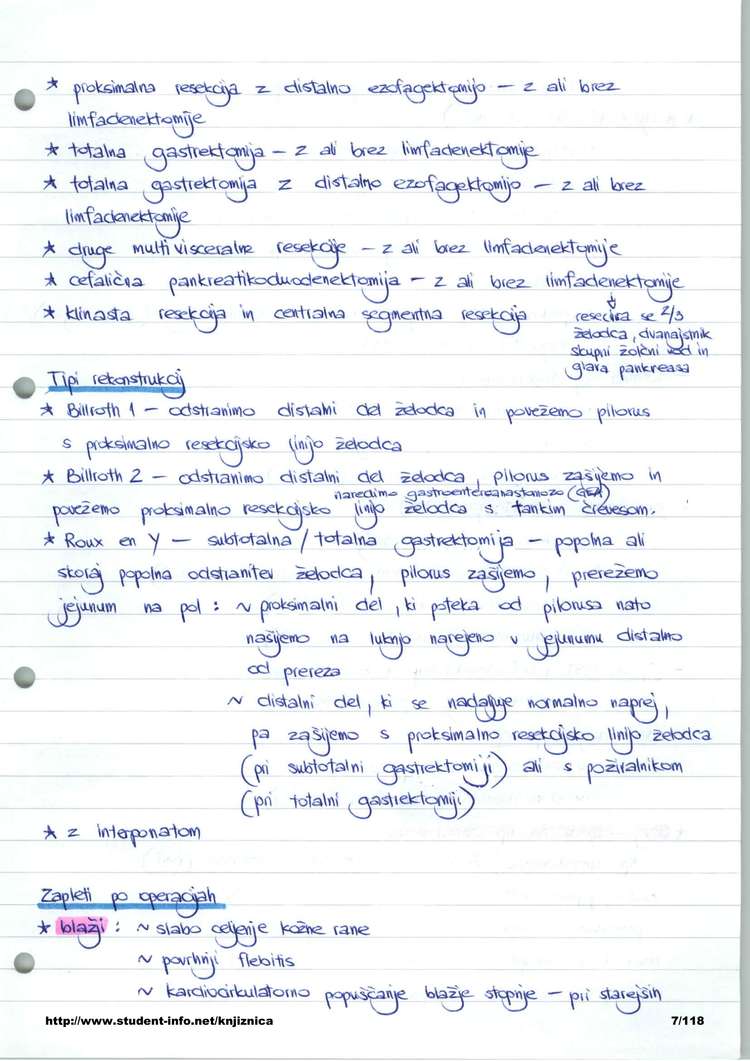 * proksimalna resekcija z distalno ezofagektomijo – z ali brez
limfadenektomije
* totalna gastrektomija – z ali brez limfadenektomije
* totalna gastrektomija z distalno ezofagektomijo – z ali brez
limfadenektomije
* druge multivisceralne resekcije – z ali brez limfadenektomije
* cefalična pankreatikoduodenektomija – z ali brez limfadenektomije
* klinasta resekcija in centralna segmentna resekcija
↓
resecira se 2/3
želodca, dvanajstnik
skupni žolčni vod in
glava pankreasa
Tipi rekonstrukcij
* Billroth 1 – odstranimo distalni del želodca in povežemo pilorus
s proksimalno resekcijsko linijo želodca
* Billroth 2 – odstranimo distalni del želodca, pilorus zašijemo in
naredimo gastroenteroanastomozo (GEA)
povežemo proksimalno resekcijsko linijo želodca s tankim črevesom.
* Roux en Y – subtotalna / totalna gastrektomija – popolna ali
skoraj popolna odstranitev želodca, pilorus zašijemo, prerežemo
jejunum na pol : ~ proksimalni del, ki poteka od pilorusa nato
našijemo na luknjo narejeno v jejunumu distalno
od prereza
~ distalni del, ki se nadaljuje normalno naprej,
pa zašijemo s proksimalno resekcijsko linijo želodca
(pri subtotalni gastrektomiji) ali s požiralnikom
(pri totalni gastrektomiji)
* z interponatom
Zapleti po operacijah
* blažji : ~ slabo celjenje kožne rane
~ površnji flebitis
~ kardiocirkulatorno popuščanje blažje stopnje – pri starejših
http://www.student-info.net/knjiznica
7/118